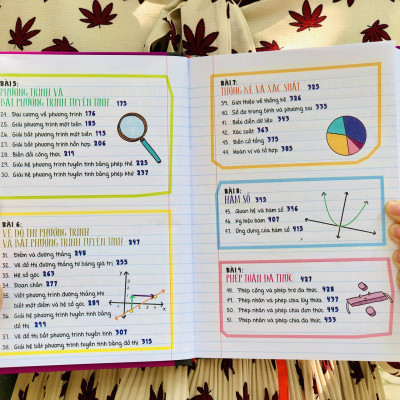 BÀI 5:
PHƯƠNG TRÌNH VÀ
BẤT PHƯƠNG TRÌNH TUYẾN TÍNH 175
24. Đại cương về phương trình 176
25. Giải phương trình một biến 185
26. Giải bất phương trình một biến 193
27. Giải bất phương trình hỗn hợp 206
28. Biến đổi công thức 219
29. Giải hệ phương trình tuyến tính bằng phép thế 225
30. Giải hệ phương trình tuyến tính bằng phép khử 237
BÀI 6:
VẼ ĐỒ THỊ PHƯƠNG TRÌNH
VÀ BẤT PHƯƠNG TRÌNH TUYẾN TÍNH 247
31. Điểm và đường thẳng 248
32. Vẽ đồ thị đường thẳng từ bảng giá trị 255
33. Hệ số góc 263
34. Đoạn chắn 277
35. Viết phương trình đường thẳng khi
biết một điểm và hệ số góc 289
36. Giải hệ phương trình tuyến tính bằng
đồ thị 299
37. Vẽ đồ thị bất phương trình tuyến tính 307
38. Giải hệ bất phương trình tuyến tính bằng đồ thị 315
BÀI 7:
THỐNG KÊ VÀ XÁC SUẤT 325
39. Giới thiệu về thống kê 326
40. Số đo trung bình và phương sai 335
41. Biểu diễn dữ liệu 343
42. Xác suất 363
43. Biến cố tổng 375
44. Hoán vị và tổ hợp 385
BÀI 8:
HÀM SỐ 395
45. Quan hệ và hàm số 396
46. Ký hiệu hàm 407
47. Ứng dụng của hàm số 415
BÀI 9:
PHÉP TOÁN ĐA THỨC 427
48. Phép cộng và phép trừ đa thức 428
49. Phép nhân và phép chia lũy thừa 437
50. Phép nhân và phép chia đơn thức 445
51. Phép nhân và phép chia đa thức 453